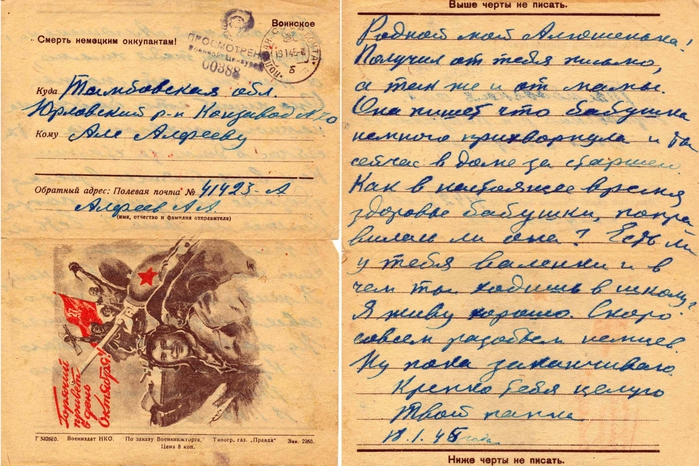 Воинское
Смерть немецким оккупантам!
ПРОСМОТРЕНО
Военной Цензурой
00388
ПОЛЕВАЯ ПОЧТА
19 1 45
Б
Куда Тамбовская обл.
Юрловский р-н Конзавод №
Кому Але Алфееву
Обратный адрес: Полевая почта № 41423-А
Алфеев А.А.
(имя, отчество и фамилия отправителя)
27
Горячий
привет
в день
Октября!
Г 532820. Воениздат НКО. По заказу Военкнижторга. Типогр. газ. „Правда" Зак. 2980.
Цена 8 коп.
Выше черты не писать.
Родной мой Алюшенька!
Получил от тебя письмо,
а так же и от мамы.
Она пишет что бабушка
немного прихворнула и ты
сейчас в доме за старшего.
Как в настоящее время
здоровье бабушки, попра
вилась ли она? Есть ли
у тебя валенки и в
чем ты ходишь в школу?
Я живу хорошо. Скоро
совсем разобьем немцев.
Ну пока заканчиваю
Крепко тебя целую
Твой папка
1.45
Ниже черты не писать.